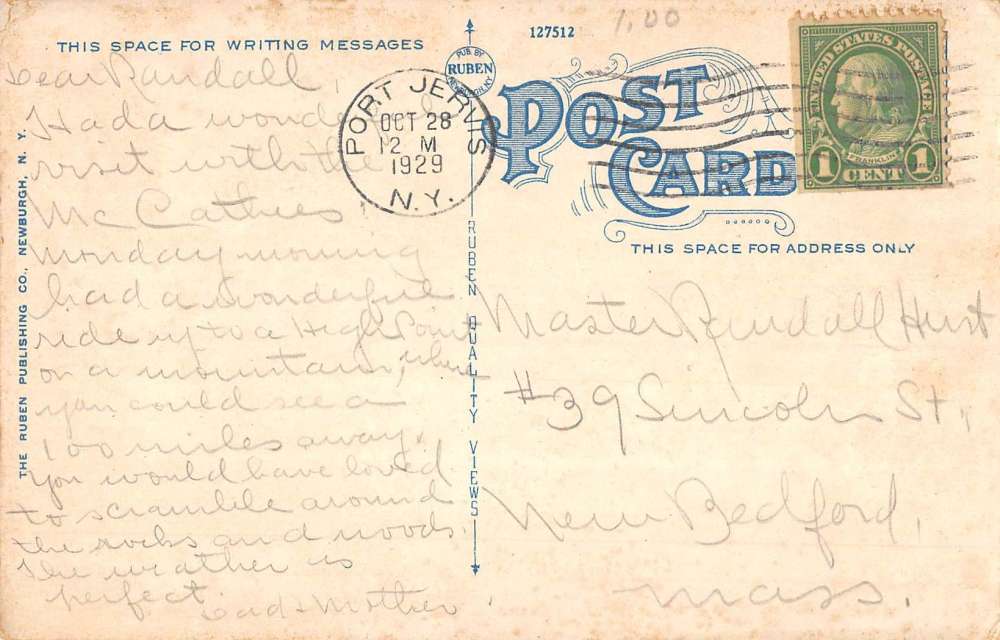 THIS SPACE FOR WRITING MESSAGES
Dear Randall,
Had a wonderful
visit with the
Mc Cathies
Monday morning
had a wonderful
ride up to a High Point
on a mountain, where
you could see a
100 miles away.
You would have loved
to scramble around
the rocks and woods.
The weather is
perfect.
Dad & Mother
THE RUBEN PUBLISHING CO., NEWBURGH, N. Y.
PUB. BY
RUBEN
NEWBURGH, N.Y.
RUBEN QUALITY VIEWS
PORT JERVIS
OCT 28
12 M
1929
N.Y.
127512
1.00
POST
CARD
UNITED STATES POSTAGE
FRANKLIN
1 CENT 1
THIS SPACE FOR ADDRESS ONLY
Master Randall Hurst
#39 Lincoln St,
New Bedford,
Mass.